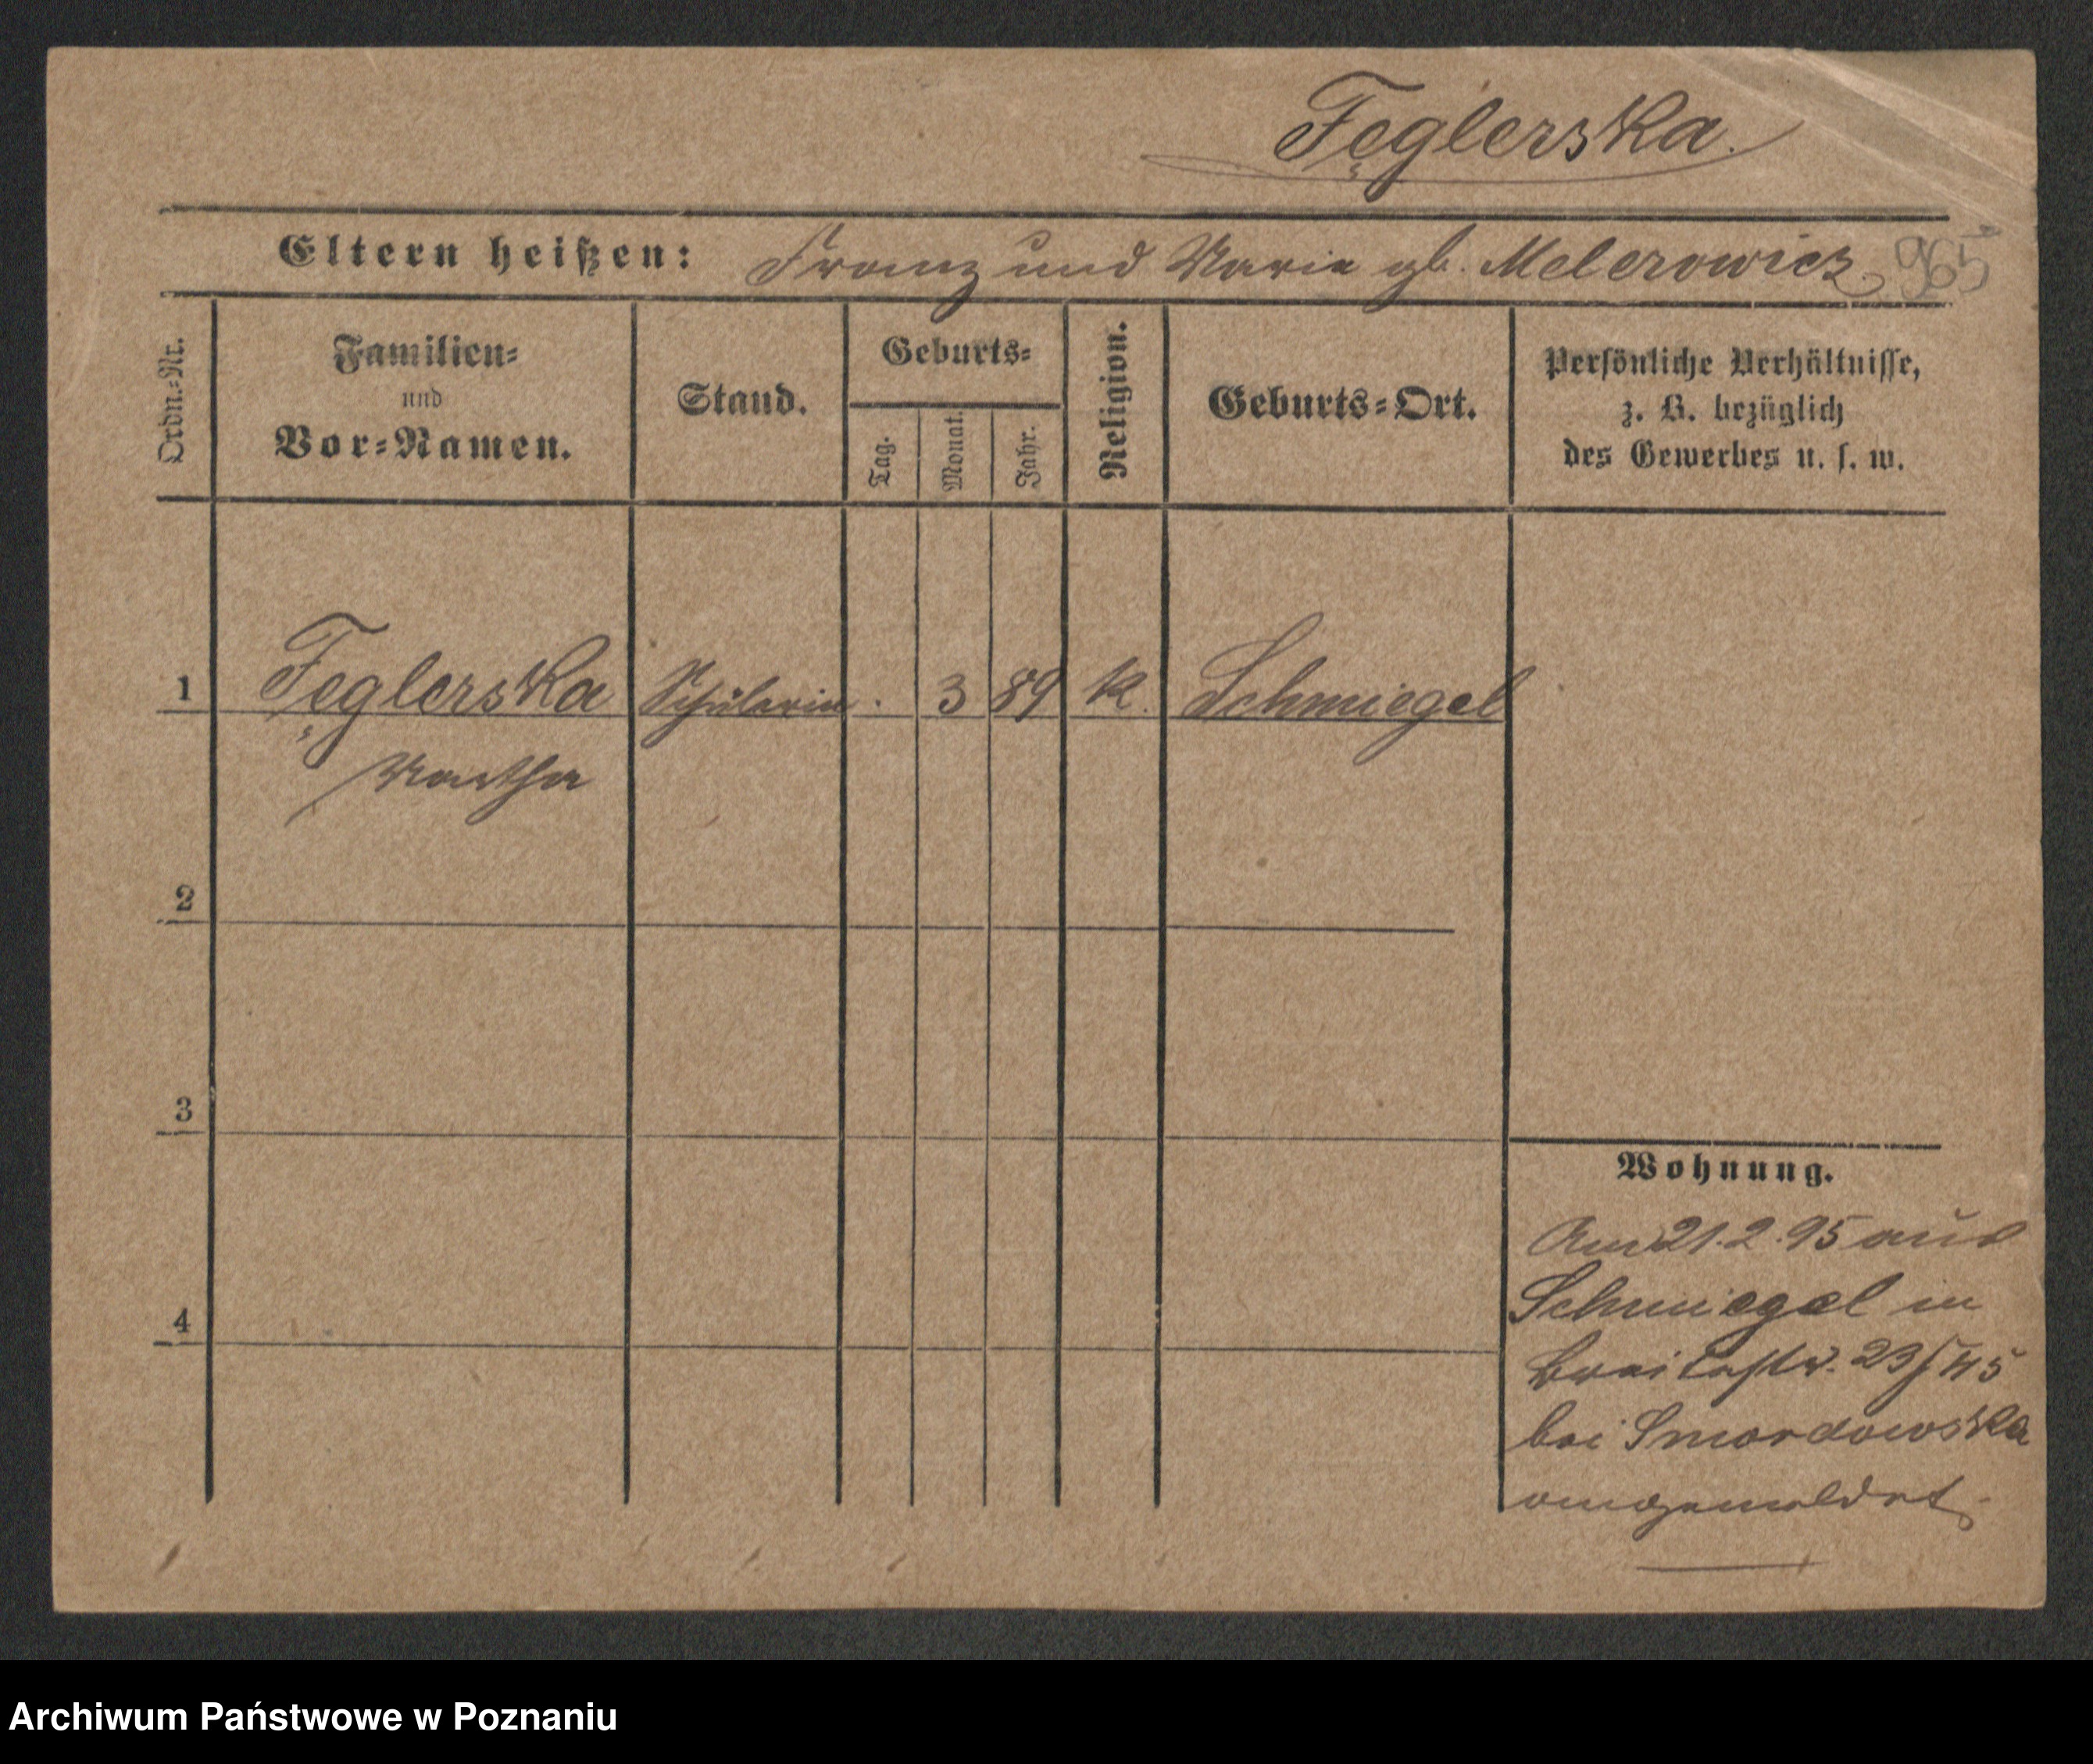 Fęglerska.
Eltern heißen: Franz und Marie gb. Melerowicz 965
Ordn.=Nr.
Familien=
und
Vor=Namen.
Stand.
Geburts=
Tag.
Monat.
Jahr.
Religion.
Geburts=Ort.
Persönliche Verhältnisse,
z. B. bezüglich
des Gewerbes u. s. w.
1 Fęglerska Schülerin . 3 89 K. Schmiegel
Martha
2
3
4
Wohnung.
Am 21.2.95 aus
Schmiegel in
Breitestr. 23/45
bei Smordowska
angemeldet.
Archiwum Państwowe w Poznaniu